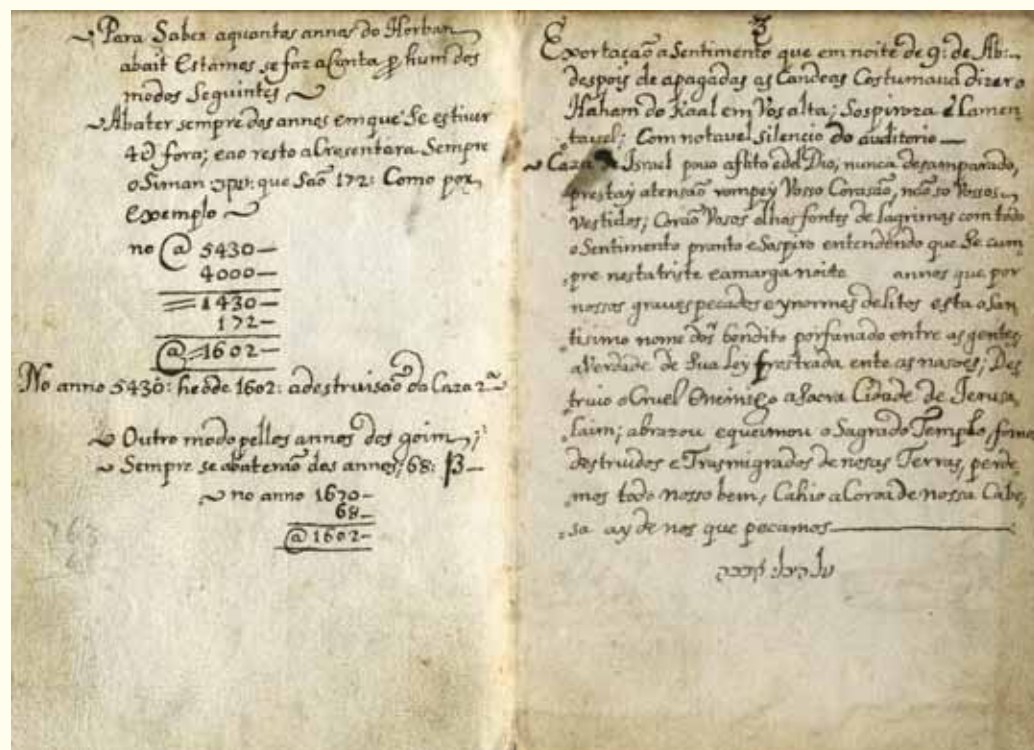 Para Saber aquantos annos do Horban
abait Estamos se faz a Conta p hum dos
modos Seguintes
Abater sempre dos annos em que Se estiver
4@ fora; e ao resto aCresentara Sempre
o Siman עקב: que Saõ 172: Como por
Exemplo
no @ 5430—
4000—
1430—
172—
@ 1602—
No anno 5430: he de 1602: a destruisaõ da Caza 2ª
Outro modo pellos annos dos goim;
Sempre se abateraõ dos annos; 68:
no anno 1670—
68—
@ 1602—
3
Exortaçaõ a Sentimento que em noite de 9: de Ab:
despois de apagadas as Candeas Costumava dizer o
Haham do Kaal em Vos alta; Sospiroza e Lamen
tavel; Com notavel silencio do auditorio—
Caza de Israel povo aflito e del Dio, nunca desamparado,
prestay atensaõ rompey Vosso Corasaõ, naõ so Vossos
vestidos; Coraõ Vosos olhos fontes de lagrimas com todo
o Sentimento pranto e Sospiro entendendo que Se cum
pre nesta triste e amarga noite annos que por
nossos graves pecados e ynormes delitos esta o San
tisimo nome bendito porfanado entre as gentes
a Verdade de Sua Ley frostrada ente as nasoes, Des
truio o Cruel Enemigo a Sacra Cidade de Jerusa
laim; abrazou e queimou o Sagrado Templo fomos
destruidos e Trasmigrados de nosas Terras, perde
mos todo nosso bem, Cahio a Coroa de nossa Cabe
sa ay de nos que pecamos